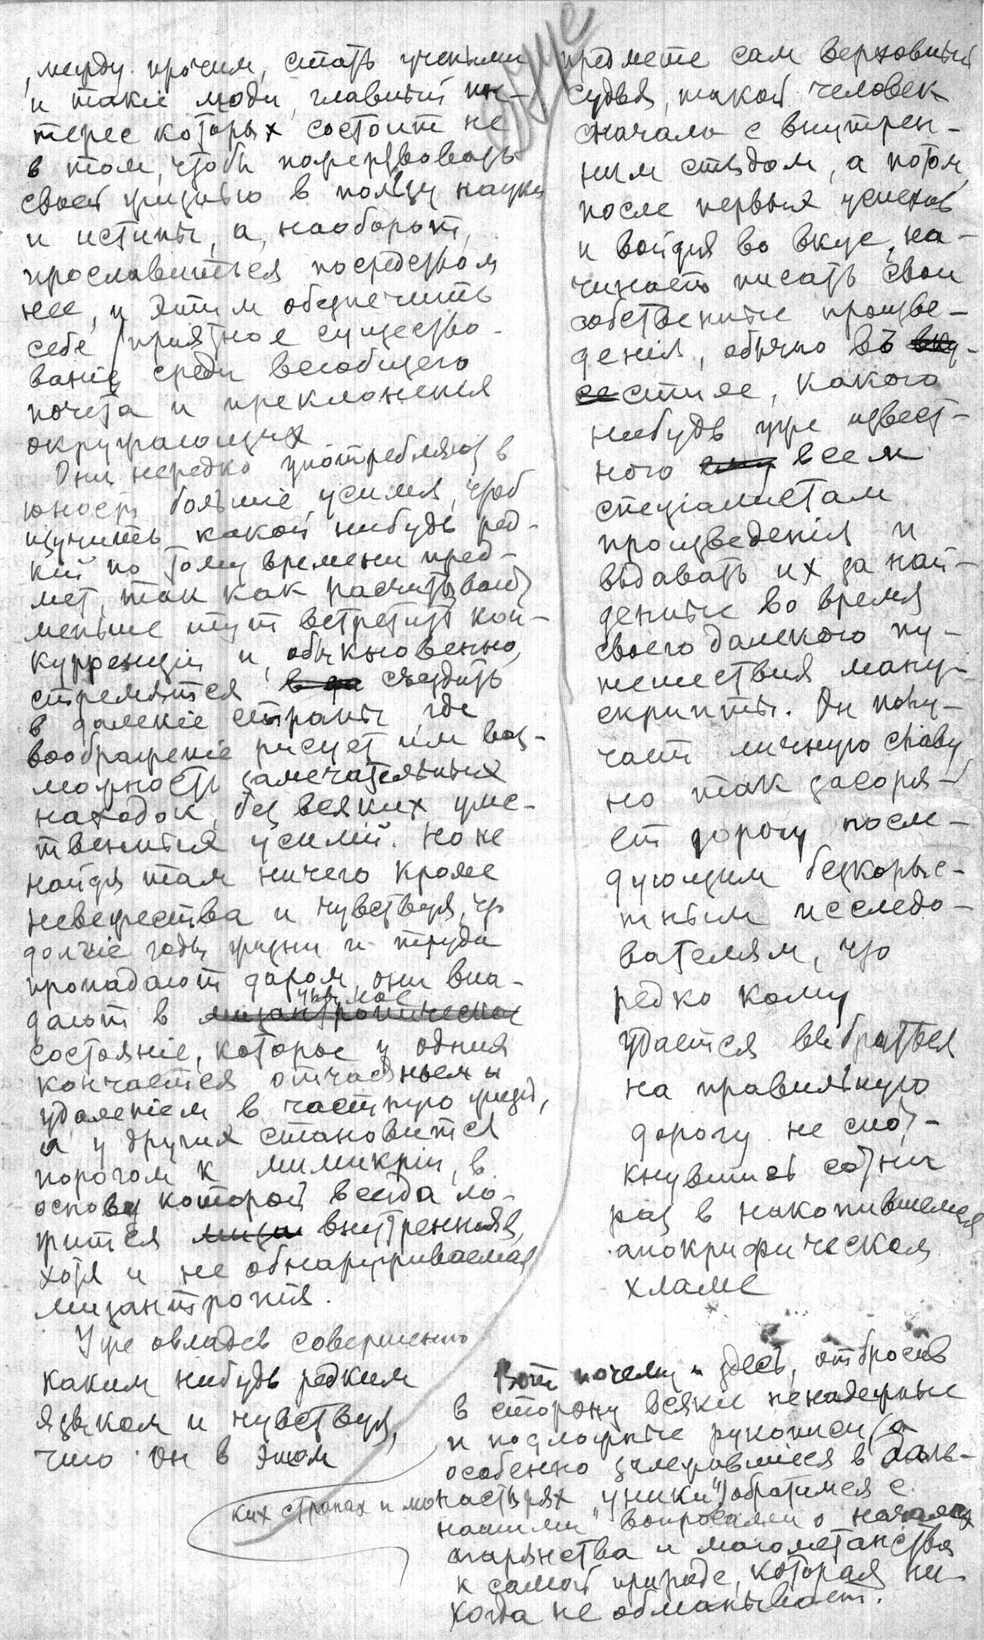 , между прочим, стать учеными
и такіе люди, главный ин-
терес которых состоит не
в том, чтобы пожертвовать
своей жизнью в пользу науки
и истины, а, наоборот,
прославиться посредством
нее, и этим обезпечить
себе пріятное существо-
ваніе среди всеобщего
почета и преклоненія
окружающих.
Они нередко употребляют в
юности большіе усилія, чтоб
изучить какой нибудь ред-
кий по тому времени пред-
мет, так как расчитывают
меньше тут встретить кон-
курренціи и, обыкновенно,
стремятся съездить
в далекіе страны, где
воображеніе рисует им воз-
можность замечательных
находок, без всяких умс-
твенных усилий. Но не
найдя там ничего кроме
невежества и чувствуя, что
долгіе годы жизни и труда
пропадают даром, они впа-
дают в
состояніе, которое у одних
кончается отчаяньем и
удаленіем в частную жизнь,
а у других становится
порогом к мимикріи, в
основу которой всегда ло-
жится внутренняя,
хотя и не обнаруживаемая
мизантропія.
Уже овладев совершенно
каким нибудь редким
языком и чувствуя,
что он в этом
предмете сам верховный
судья, такой человек
сначала с внутрен-
ним стыдом, а потом,
после первых успехов
и войдя во вкус, на-
чинает писать свои
собственные произве-
денія, обычно въ
стиле, какого
нибудь уже извест-
ного всем
спеціалистам
произведенія и
выдавать их за най-
денные во время
своего далекого пу-
тешествия ману-
скрипты. Он полу-
чает личную славу,
но так засоря-
ет дорогу после-
дующим безкорыс-
тным исследо-
вателям, что
редко кому
удается выбраться
на правильную
дорогу не спот-
кнувшись сотни
раз в накопившемся
апокрифическом
хламе
Вот почему и здесь, отбросив
в сторону всякие ненадежные
и подложные рукописи (а
особенно залежавшіеся в даль-
ких странах и монастырях „уники“) обратимся с
нашими вопросами о началах
агарянства и магометанства
к самой природе, которая ни-
когда не обманывает.